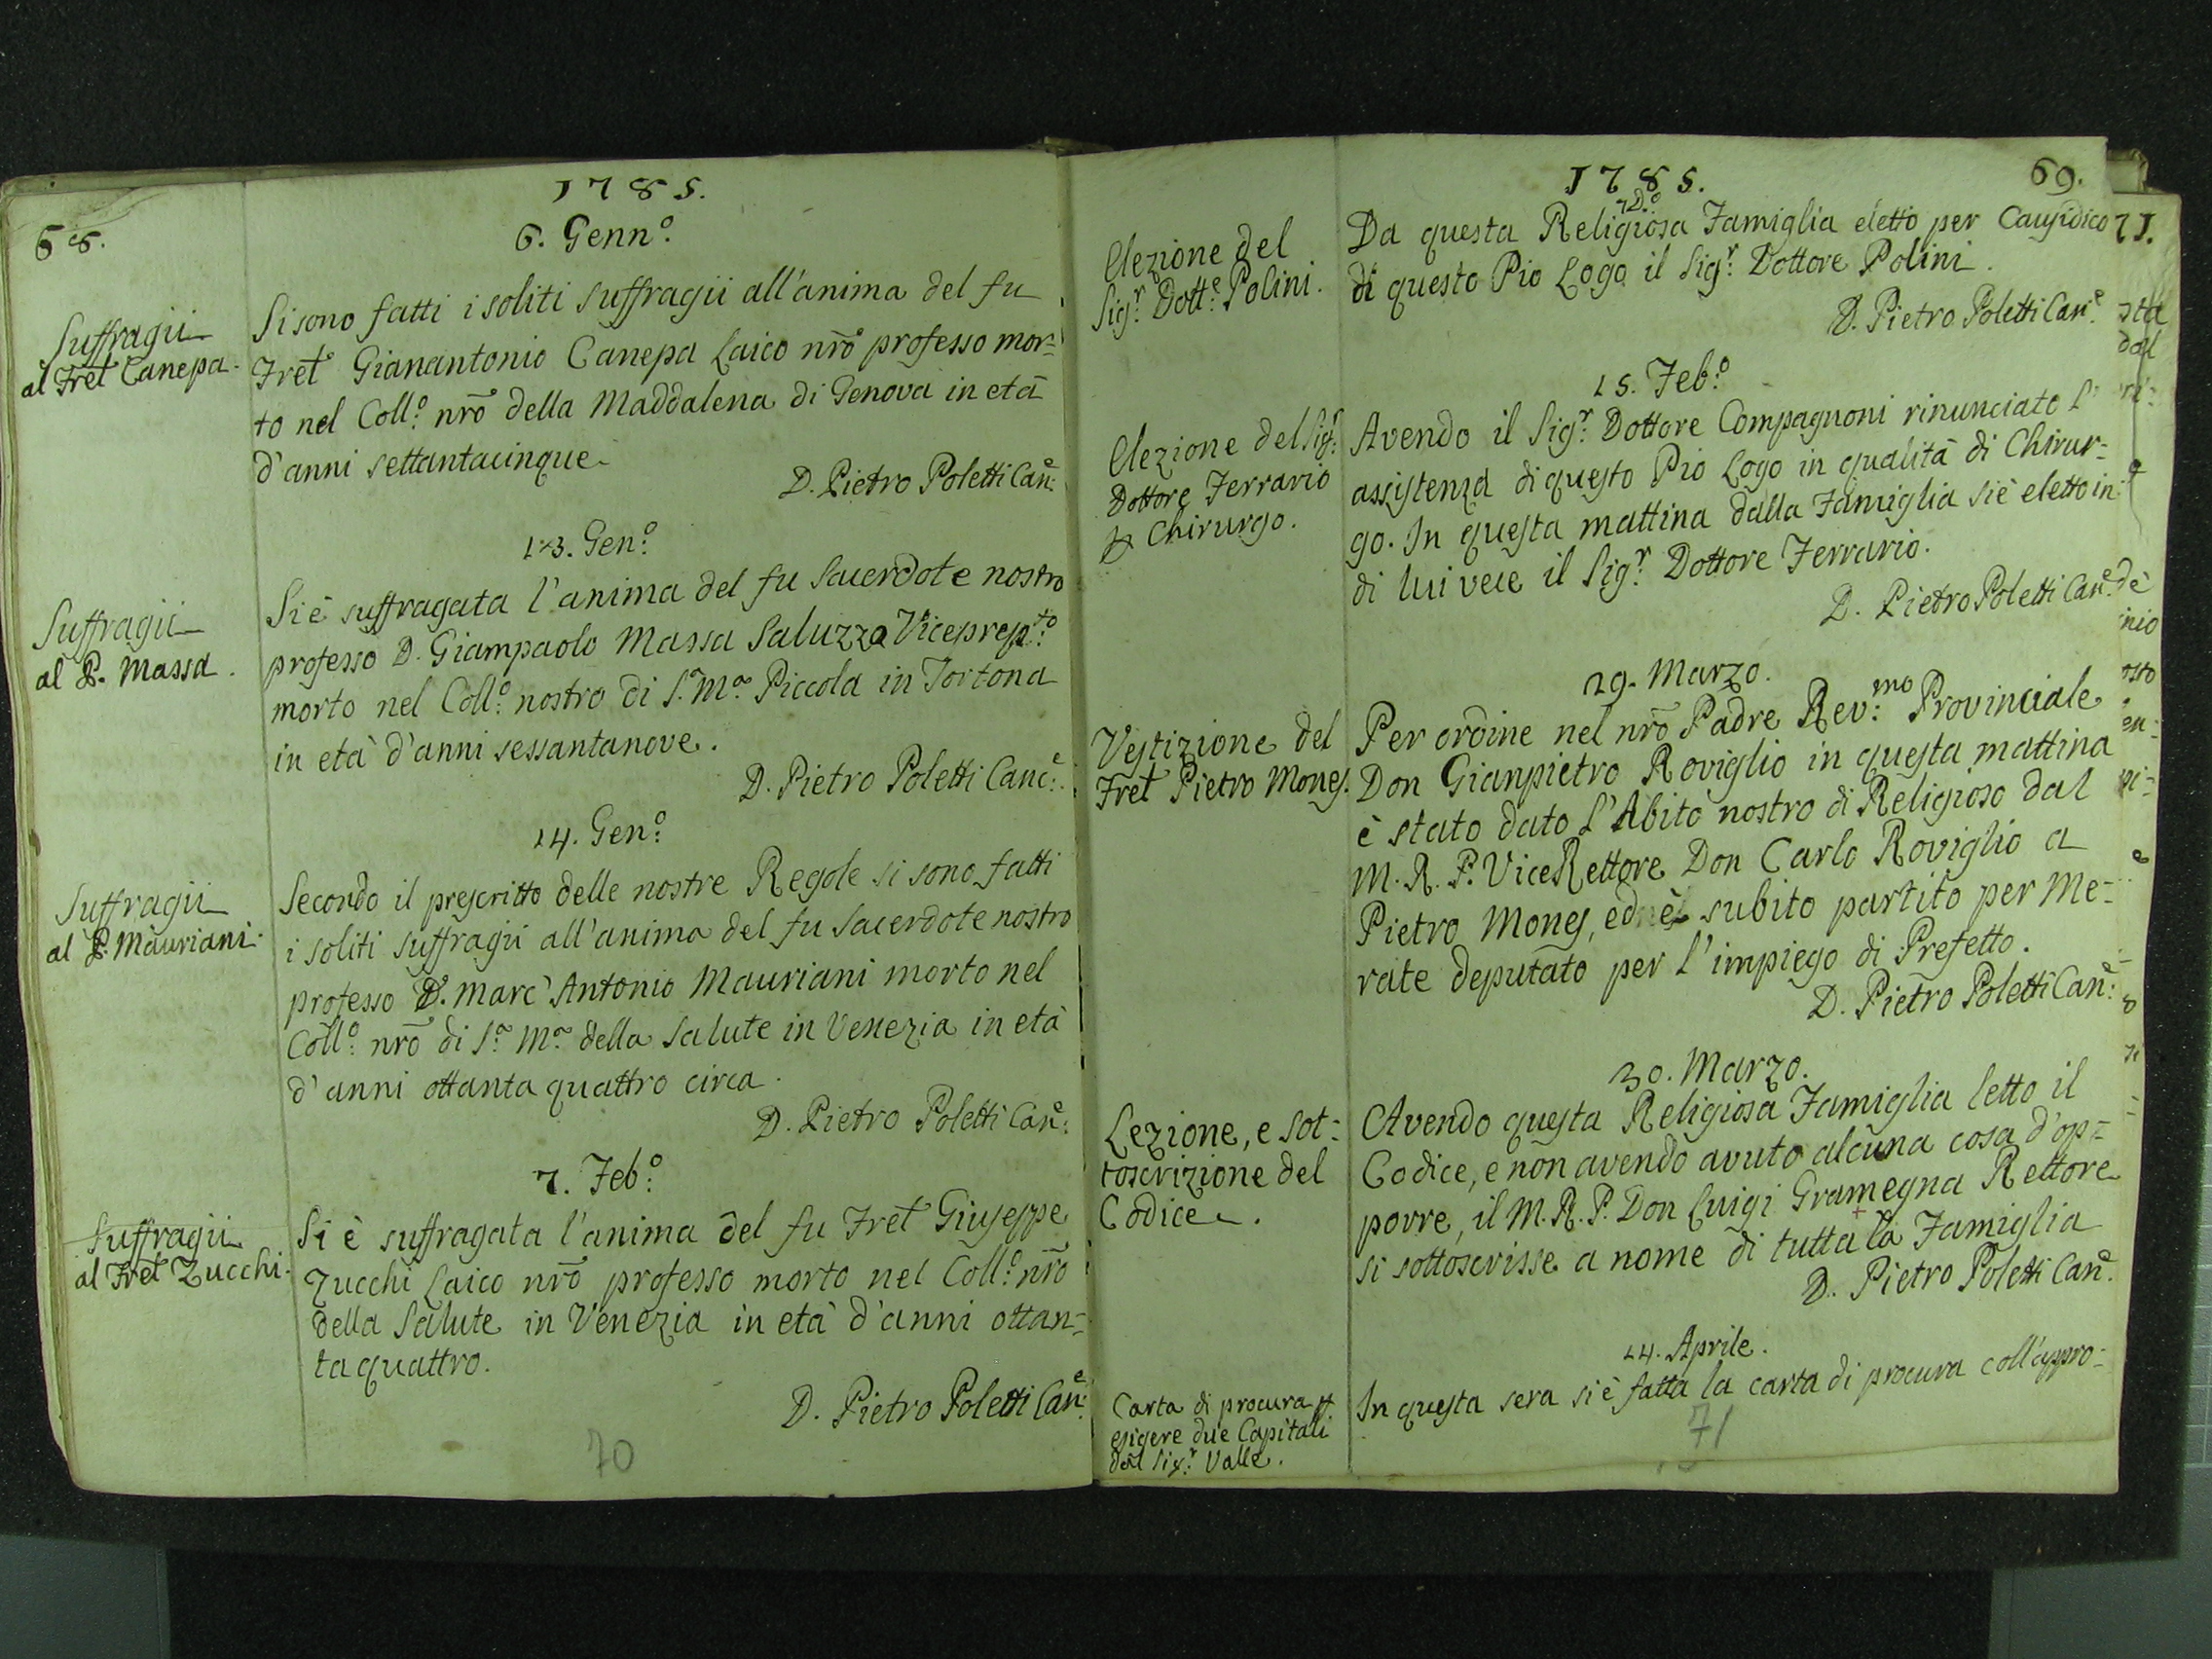 1785.
68.
6. Genn.º
Suffragii
al Fret Canepa.
Si sono fatti i soliti suffragii all'anima del fu
Fret Gianantonio Canepa Laico nrõ professo mor=
to nel Coll.º nrõ della Maddalena di Genova in età
d'anni settantacinque.
D. Pietro Poletti Canc.e
13. Gen.º
Suffragii
al P. Massa.
Si è suffragata l'anima del fu Sacerdote nostro
professo D. Giampaolo Massa Saluzzo Viceprep.to
morto nel Coll.º nostro di S.a M.a Piccola in Tortona
in età d'anni sessantanove.
D. Pietro Poletti Canc.e
14. Gen.º
Suffragii
al P. Mauriani.
Secondo il prescritto delle nostre Regole si sono fatti
i soliti suffragii all'anima del fu Sacerdote nostro
professo D. Marc'Antonio Mauriani morto nel
Coll.º nrõ di S.a M.a della Salute in Venezia in età
d'anni ottanta quattro circa.
D. Pietro Poletti Can.e
7. Feb.º
Suffragii
al Fret Zucchi.
Si è suffragata l'anima del fu Fret Giuseppe
Zucchi Laico nrõ professo morto nel Coll.º nrõ
della Salute in Venezia in età d'anni ottan=
ta quattro.
D. Pietro Poletti Can.e
70
1785.
69.
D.º
Elezione del
Sig.r Dott.e Polini.
Da questa Religiosa Famiglia eletto per Causidico
di questo Pio Logo il Sig.r Dottore Polini.
D. Pietro Poletti Can.e
15. Feb.º
Elezione del Sig.r
Dottore Ferrario
Chirurgo.
Avendo il Sig.r Dottore Compagnoni rinunciato l'
assistenza di questo Pio Logo in qualità di Chirur=
go. In questa mattina dalla Famiglia si è eletto in
di lui vece il Sig.r Dottore Ferrario.
D. Pietro Poletti Can.e
29. Marzo.
Vestizione del
Fret Pietro Mones.
Per ordine nel nrõ Padre Rev.mo Provinciale
Don Gianpietro Roviglio in questa mattina
è stato dato l'Abito nostro di Religioso dal
M. R. P. ViceRettore Don Carlo Roviglio a
Pietro Mones, ed è subito partito per Me=
rate deputato per l'impiego di Prefetto.
D. Pietro Poletti Can.e
30. Marzo.
Lezione, e sot=
toscrizione del
Codice.
Avendo questa Religiosa Famiglia letto il
Codice, e non avendo avuto alcuna cosa d'op=
porre, il M. R. P. Don Luigi Gramegna Rettore
si sottoscrisse a nome di tutta la Famiglia
D. Pietro Poletti Can.e
14. Aprile.
Carta di procura
esigere due Capitali
dal Sig.r Valle.
In questa sera si è fatta la carta di procura coll'appro=
71
71.